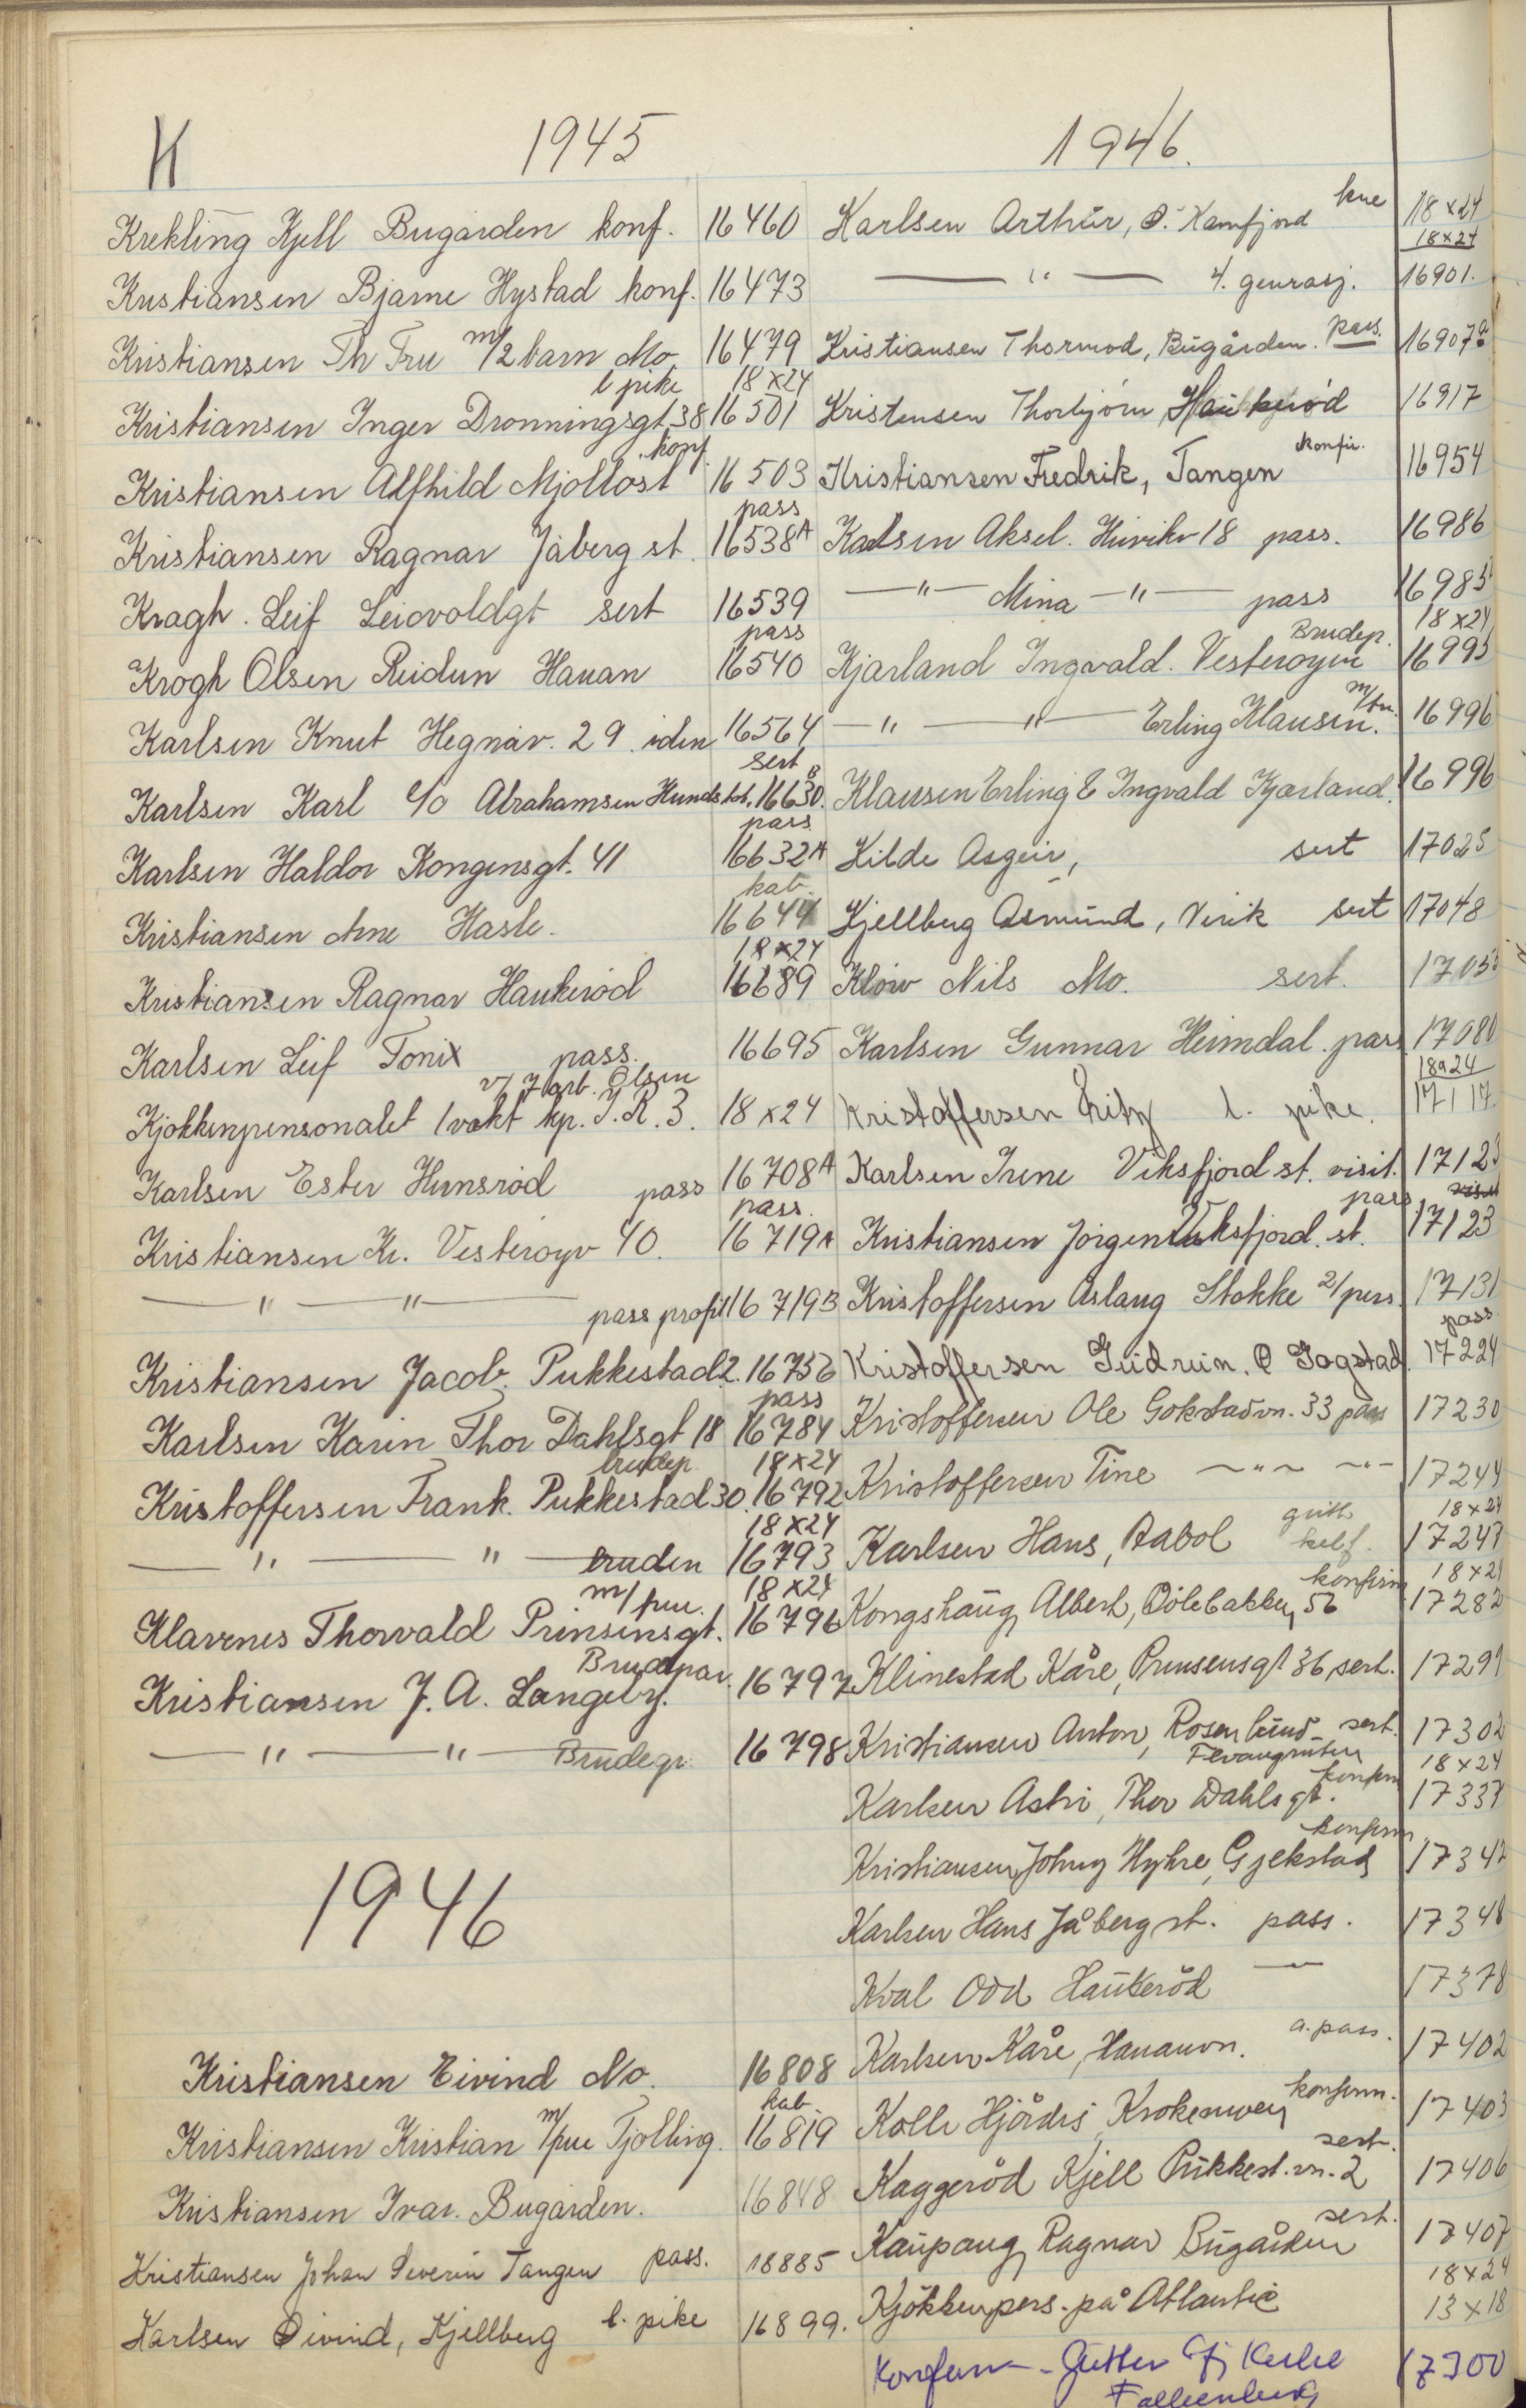 K 1945
Krekling Kjell Bugården konf. 16460
Kristiansen Bjarne Hystad konf. 16473
Kristiansen Th Fru m/2 barn Mo 16479
l pike 18x24
Kristiansen Inger Dronningsgt 38 16501
konf.
Kristiansen Alfhild Mjøllost 16503
pass
Kristiansen Ragnar Jåberg st. 16538A
Kragh. Leif Leiovoldgt sert 16539
pass
Krogh Olsen Reidun Hauan 16540
Karlsen Knut Hegnav. 29. iden 16564
sert
Karlsen Karl c/o Abrahamsen Hunds 16630B
pass
Karlsen Haldor Kongensgt. 41 16632A
kab.
Kristiansen Arne Hasle. 16644
18x24
Kristiansen Ragnar Haukerød 16689
Karlsen Leif Tonix pass. 16695
v/ Olsen
Kjøkkenpersonalet 1 vakt kp. I.R.3. 18x24
Karlsen Ester Hemsrød pass 16708A
pass.
Kristiansen Kr. Vesterøyv 40. 16719A
— " — " — pass profil 16719B
Kristiansen Jacob Pukkestad 2. 16756
pass
Karlsen Karin Thor Dahlsgt 18 16784
brudep. 18x24
Kristoffersen Frank. Pukkestad 30. 16792
18x24
— " — " — bruden 16793
m/fru. 18x24
Klavenes Thorvald Prinsensgt. 16796
Brudpar.
Kristiansen J. A. Langeby. 16797
— " — " — Brudegr. 16798
1946
Kristiansen Eivind Mo. 16808
kab.
Kristiansen Kristian m/fru Tjølling. 16819
Kristiansen Ivar. Bugården. 16848
Kristiansen Johan Severin Tangen pass. 18885
Karlsen Øivind, Kjellberg l. pike 16899.
1946.
Karlsen Arthur, Ø. Kamfjord kne 18x24
18x24
— " — 4. generasj. 16901.
Kristiansen Thormod, Bugården. pass. 16907a
Kristensen Thorbjørn Haukerød 16917
Kristiansen Fredrik, Tangen konfir. 16954
Karlsen Aksel. Hinrikv 18 pass. 16986
— " — Mina — " — pass 16985
Brudep. 18x24
Kjærland Ingvald. Vesterøyen 16995
— " — " — Erling Klausen. m/fru. 16996
Klausen Erling & Ingvald Kjærland. 16996
Kilde Asgeir, sert 17025
Kjellberg Asmund, Virik sert 17048
Kløw Nils Mo. sert. 17053
Karlsen Gunnar Heimdal. pass. 17080
18x24
Kristoffersen Fritz l. pike. 17117
Karlsen Irene Viksfjord st. visit. 17123
pass
Kristiansen Jørgen Viksfjord. st. 17123
Kristoffersen Aslaug Stokke 2/pers. 17131
pass
Kristoffersen Gudrun. Gogstad. 17224
Kristoffersen Ole Gokstadvn. 33 pass 17230
Kristoffersen Tine ~ " ~ ~ " ~ 17244
gutt 18x24
Karlsen Hans, Aabol helf. 17247
konfirm. 18x24
Kongshaug Albert, Dølebakken 56 17282
Klinestad Kåre, Prinsensgt 36 sert. 17291
Kristiansen Anton, Rosenlund sert. 17302
Flvangruten 18x24
konfirm
Karlsen Astri, Thor Dahls gt. 17337
konfirm.
Kristiansen Johny Myhre, Gjekstad 17342
Karlsen Hans Jåberg st. pass. 17348
Kval Odd Haukerød — " — 17378
Karlsen Kåre, Hauanvn. a. pass. 17402
Kolle Hjørdis, Krokenvei konfirm. 17403
sert.
Kaggerød Kjell Pukkest. vn. 2 17406
sert.
Kaupang Ragnar Bugården 17407
18x24
Kjøkkenpers. på Atlantic 13x18
Konfirm - Gutter 17300